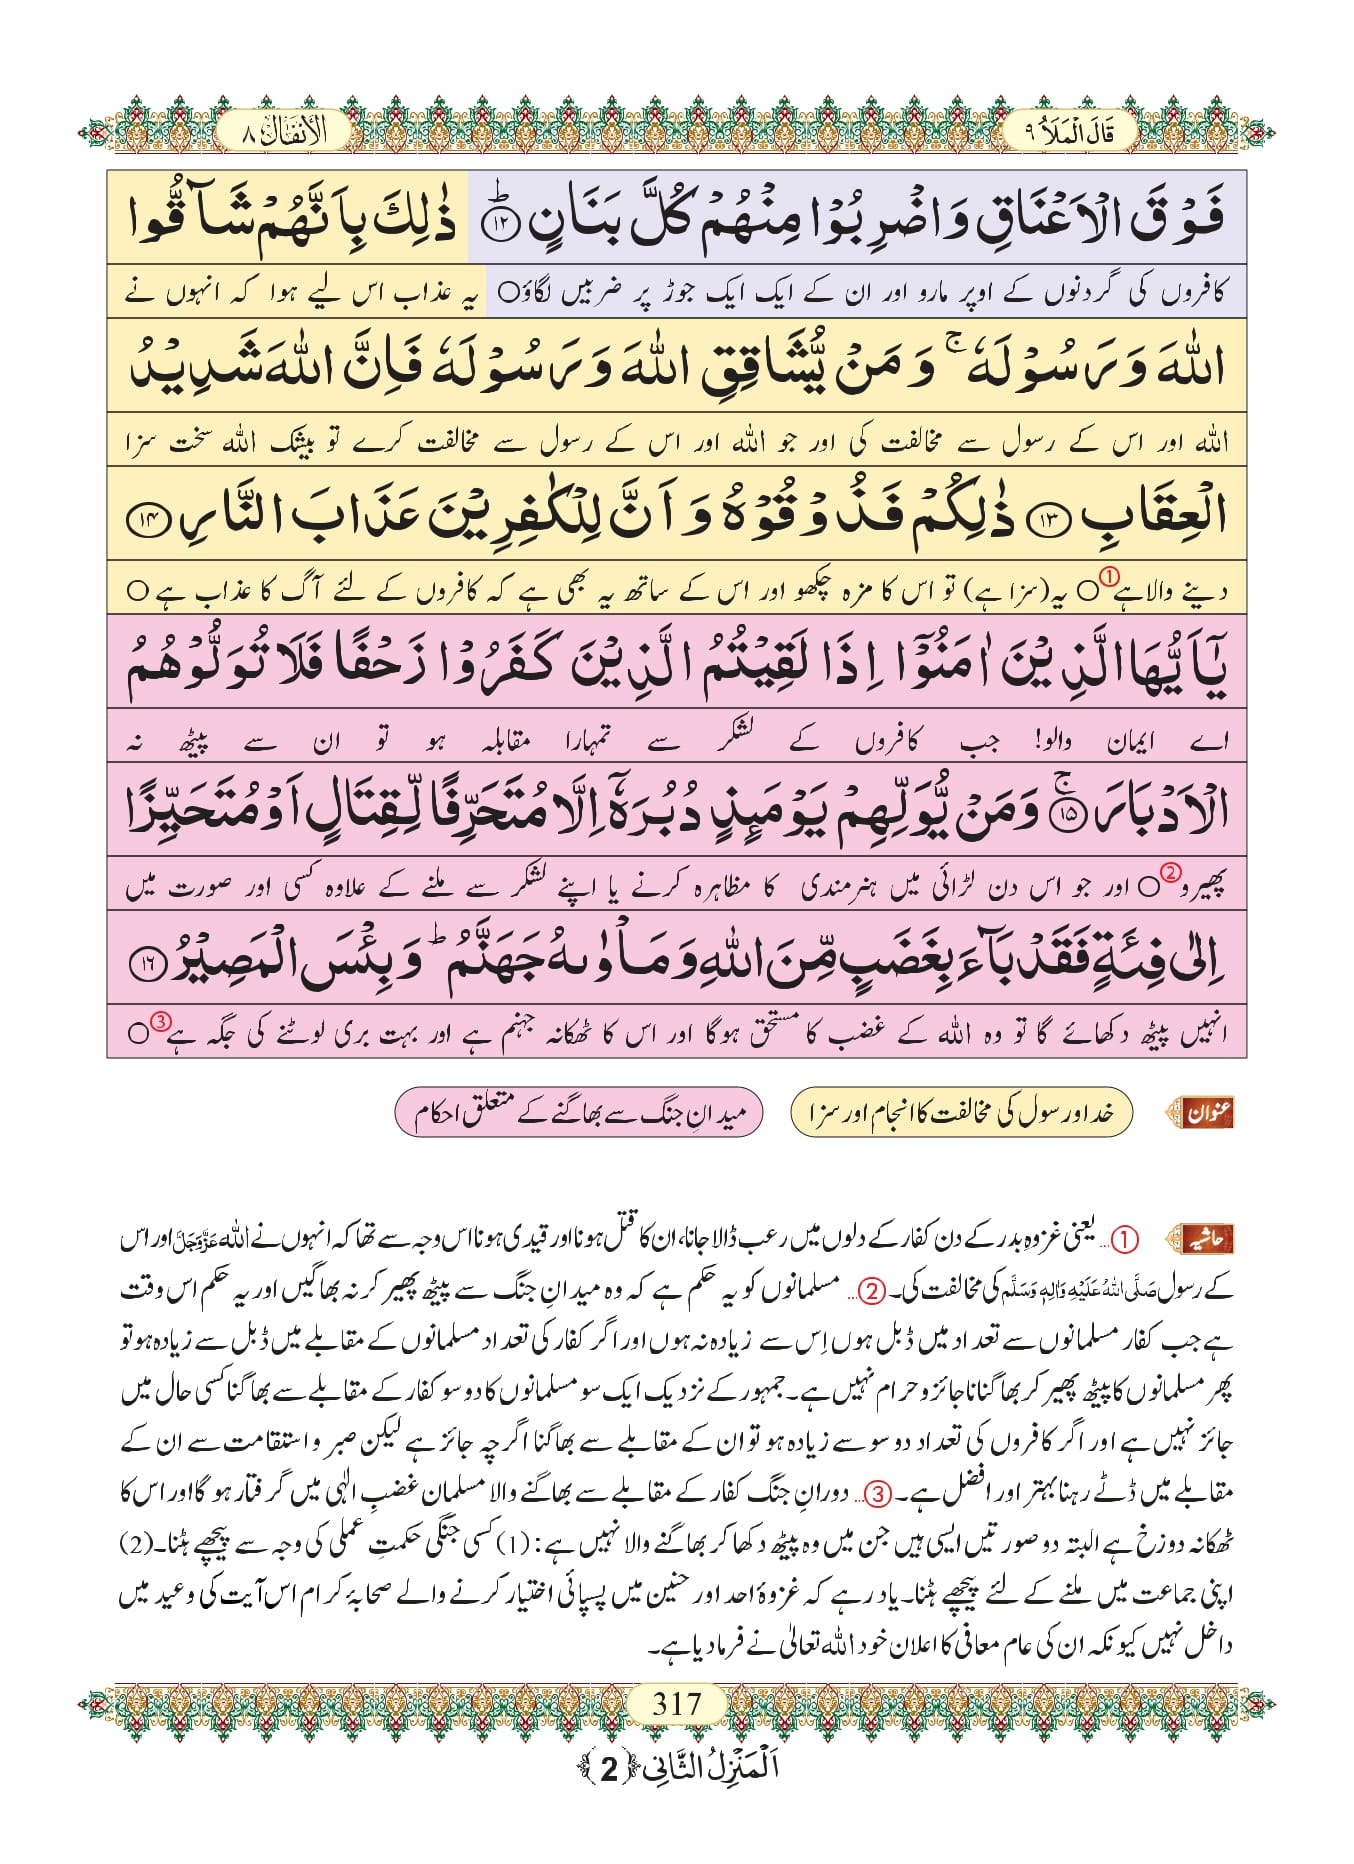 قَالَ الْمَلَاُ ۹
الْاَنْفَال ۸
فَوْقَ الْاَعْنَاقِ وَاضْرِبُوْا مِنْهُمْ كُلَّ بَنَانٍ ؕ﴿۱۲﴾ ذٰلِكَ بِاَنَّهُمْ شَآقُّوا
کافروں کی گردنوں کے اوپر مارو اور ان کے ایک ایک جوڑ پر ضربیں لگاؤ○ یہ عذاب اس لیے ہوا کہ انہوں نے
اللّٰهَ وَرَسُوْلَهٗ ۚ وَمَنْ یُّشَاقِقِ اللّٰهَ وَرَسُوْلَهٗ فَاِنَّ اللّٰهَ شَدِیْدُ
اللہ اور اس کے رسول سے مخالفت کی اور جو اللہ اور اس کے رسول سے مخالفت کرے تو بیشک اللہ سخت سزا
الْعِقَابِ ﴿۱۳﴾ ذٰلِكُمْ فَذُوْقُوْهُ وَاَنَّ لِلْكٰفِرِیْنَ عَذَابَ النَّارِ ﴿۱۴﴾
دینے والا ہے①○ یہ (سزا ہے) تو اس کا مزہ چکھو اور اس کے ساتھ یہ بھی ہے کہ کافروں کے لئے آگ کا عذاب ہے ○
یٰۤاَیُّهَا الَّذِیْنَ اٰمَنُوْۤا اِذَا لَقِیْتُمُ الَّذِیْنَ كَفَرُوْا زَحْفًا فَلَا تُوَلُّوْهُمُ
اے ایمان والو! جب کافروں کے لشکر سے تمہارا مقابلہ ہو تو ان سے پیٹھ نہ
الْاَدْبَارَ ۚ﴿۱۵﴾ وَمَنْ یُّوَلِّهِمْ یَوْمَىِٕذٍ دُبُرَهٗۤ اِلَّا مُتَحَرِّفًا لِّقِتَالٍ اَوْ مُتَحَیِّزًا
پھیرو②○ اور جو اس دن لڑائی میں ہنرمندی کا مظاہرہ کرنے یا اپنے لشکر سے ملنے کے علاوہ کسی اور صورت میں
اِلٰى فِئَةٍ فَقَدْ بَآءَ بِغَضَبٍ مِّنَ اللّٰهِ وَمَاْوٰىهُ جَهَنَّمُ ؕ وَبِئْسَ الْمَصِیْرُ ﴿۱۶﴾
انہیں پیٹھ دکھائے گا تو وہ اللہ کے غضب کا مستحق ہوگا اور اس کا ٹھکانہ جہنم ہے اور بہت بری لوٹنے کی جگہ ہے③○
عنوان خدا اور سول کی مخالفت کا انجام اور سزا میدانِ جنگ سے بھاگنے کے متعلق احکام
حاشیہ ①... یعنی غزوہِ بدر کے دن کفار کے دلوں میں رعب ڈالا جانا، ان کا قتل ہونا اور قیدی ہونا اس وجہ سے تھا کہ انہوں نے اللہ عَزَّوَجَلَّ اور اس
کے رسول صَلَّی اللہُ عَلَیْہِ وَاٰلِہٖ وَسَلَّم کی مخالفت کی۔ ②... مسلمانوں کو یہ حکم ہے کہ وہ میدانِ جنگ سے پیٹھ پھیر کر نہ بھاگیں اور یہ حکم اس وقت
ہے جب کفار مسلمانوں سے تعداد میں ڈبل ہوں اِس سے زیادہ نہ ہوں اور اگر کفار کی تعداد مسلمانوں کے مقابلے میں ڈبل سے زیادہ ہو تو
پھر مسلمانوں کا پیٹھ پھیر کر بھاگنا ناجائز و حرام نہیں ہے۔ جمہور کے نزدیک ایک سو مسلمانوں کا دو سو کفار کے مقابلے سے بھاگنا کسی حال میں
جائز نہیں ہے اور اگر کافروں کی تعداد دو سو سے زیادہ ہو تو ان کے مقابلے سے بھاگنا اگرچہ جائز ہے لیکن صبر و استقامت سے ان کے
مقابلے میں ڈٹے رہنا بہتر اور افضل ہے۔ ③... دورانِ جنگ کفار کے مقابلے سے بھاگنے والا مسلمان غضبِ الٰہی میں گرفتار ہو گا اور اس کا
ٹھکانہ دوزخ ہے البتہ دو صورتیں ایسی ہیں جن میں وہ پیٹھ دکھا کر بھاگنے والا نہیں ہے: (1) کسی جنگی حکمتِ عملی کی وجہ سے پیچھے ہٹنا۔ (2)
اپنی جماعت میں ملنے کے لئے پیچھے ہٹنا۔ یاد رہے کہ غزوۂ احد اور حنین میں پسپائی اختیار کرنے والے صحابۂ کرام اس آیت کی وعید میں
داخل نہیں کیونکہ ان کی عام معافی کا اعلان خود اللہ تعالیٰ نے فرما دیا ہے۔
317
اَلْمَنْزِلُ الثَّانِی ﴿2﴾